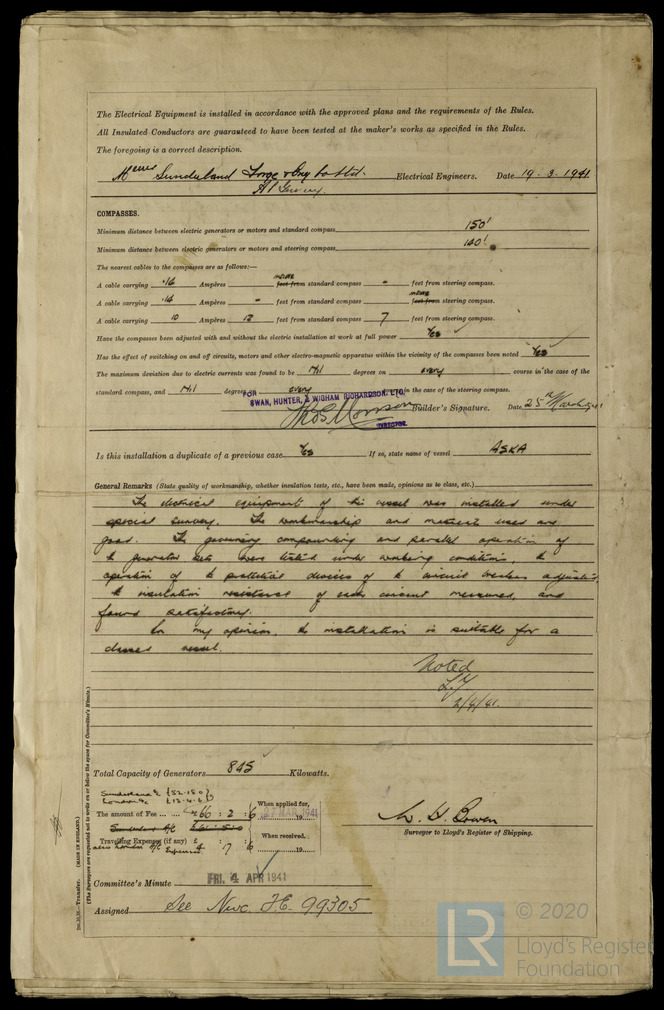 The Electrical Equipment is installed in accordance with the approved plans and the requirements of the Rules.
All Insulated Conductors are guaranteed to have been tested at the maker's works as specified in the Rules.
The foregoing is a correct description.
Messrs Sunderland Forge & Eng Co Ltd. Electrical Engineers. Date 19.3.1941.
COMPASSES.
Minimum distance between electric generators or motors and standard compass 150'
Minimum distance between electric generators or motors and steering compass 140'
The nearest cables to the compasses are as follows:—
A cable carrying .14 Ampères inside feet from standard compass - feet from steering compass.
A cable carrying .14 Ampères - feet from standard compass inside feet from steering compass.
A cable carrying 10 Ampères 12 feet from standard compass 7 feet from steering compass.
Have the compasses been adjusted with and without the electric installation at work at full power Yes
Has the effect of switching on and off circuits, motors and other electro-magnetic apparatus within the vicinity of the compasses been noted Yes
The maximum deviation due to electric currents was found to be Nil degrees on every course in the case of the
standard compass, and Nil degrees on every course in the case of the steering compass.
FOR
SWAN, HUNTER, & WIGHAM RICHARDSON, LTD.
Thos Morison Builder's Signature. Date 25th March 1941
DIRECTOR.
Is this installation a duplicate of a previous case Yes If so, state name of vessel ASKA
General Remarks (State quality of workmanship, whether insulation tests, etc., have been made, opinions as to class, etc.)
The electrical equipment of this vessel was installed under
special survey. The workmanship and material used are
good. The governing compounding and parallel operation of
the generator sets were tested under working conditions, the
operation of the protective devices of the circuit breakers adjusted,
the insulation resistance of each circuit measured, and
found satisfactory.
In my opinion, the installation is suitable for a
classed vessel.
Noted
2/4/41.
Total Capacity of Generators 845 Kilowatts.
Sunderland
London
The amount of Fee ... £66 : 2 : 6 When applied for, 19
MAR 1941
Travelling Expenses (if any) £ 4 : 7 : 6 When received, 19
W. H. Bowen
Surveyor to Lloyd's Register of Shipping.
Committee's Minute FRI. 4 APR 1941
Assigned See Nwc. F.E. 99305
(The Surveyors are requested not to write on or below the space for Committee's Minute.)
Transfer. (MADE IN ENGLAND.)
LR © 2020
Lloyd's Register
Foundation